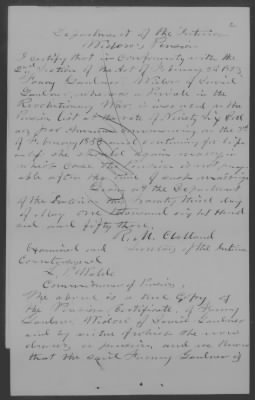 2
Department of the Interior
Widow's Pension
I certify that in Conformity with the
2nd Section of the Act of February 3d 1853
Fanny Gardner Widow of David
Gardner, who was a Private in the
Revolutionary War, is inscribed on the
Pension list at the rate of Ninety Six Dol
ars per Annum commencing on the 3d
of February 1853 and continuing for life
unless she should again marry in
which case the Pension is not pay
able after the time of such marriage
Given at the Department
of the Interior this twenty third day
of May one thousand eight Hund
red and fifty three.
R. McClelland
Examined and Secretary of the Interior
Countersigned
L. P. Waldo
Commissioner of Pensions,
The above is a true Copy, of
the Pension Certificate, of Fanny
Gardner, Widow of David Gardner
and by virtue of which she now
draws a pension, and we know
that the said Fanny Gardner is